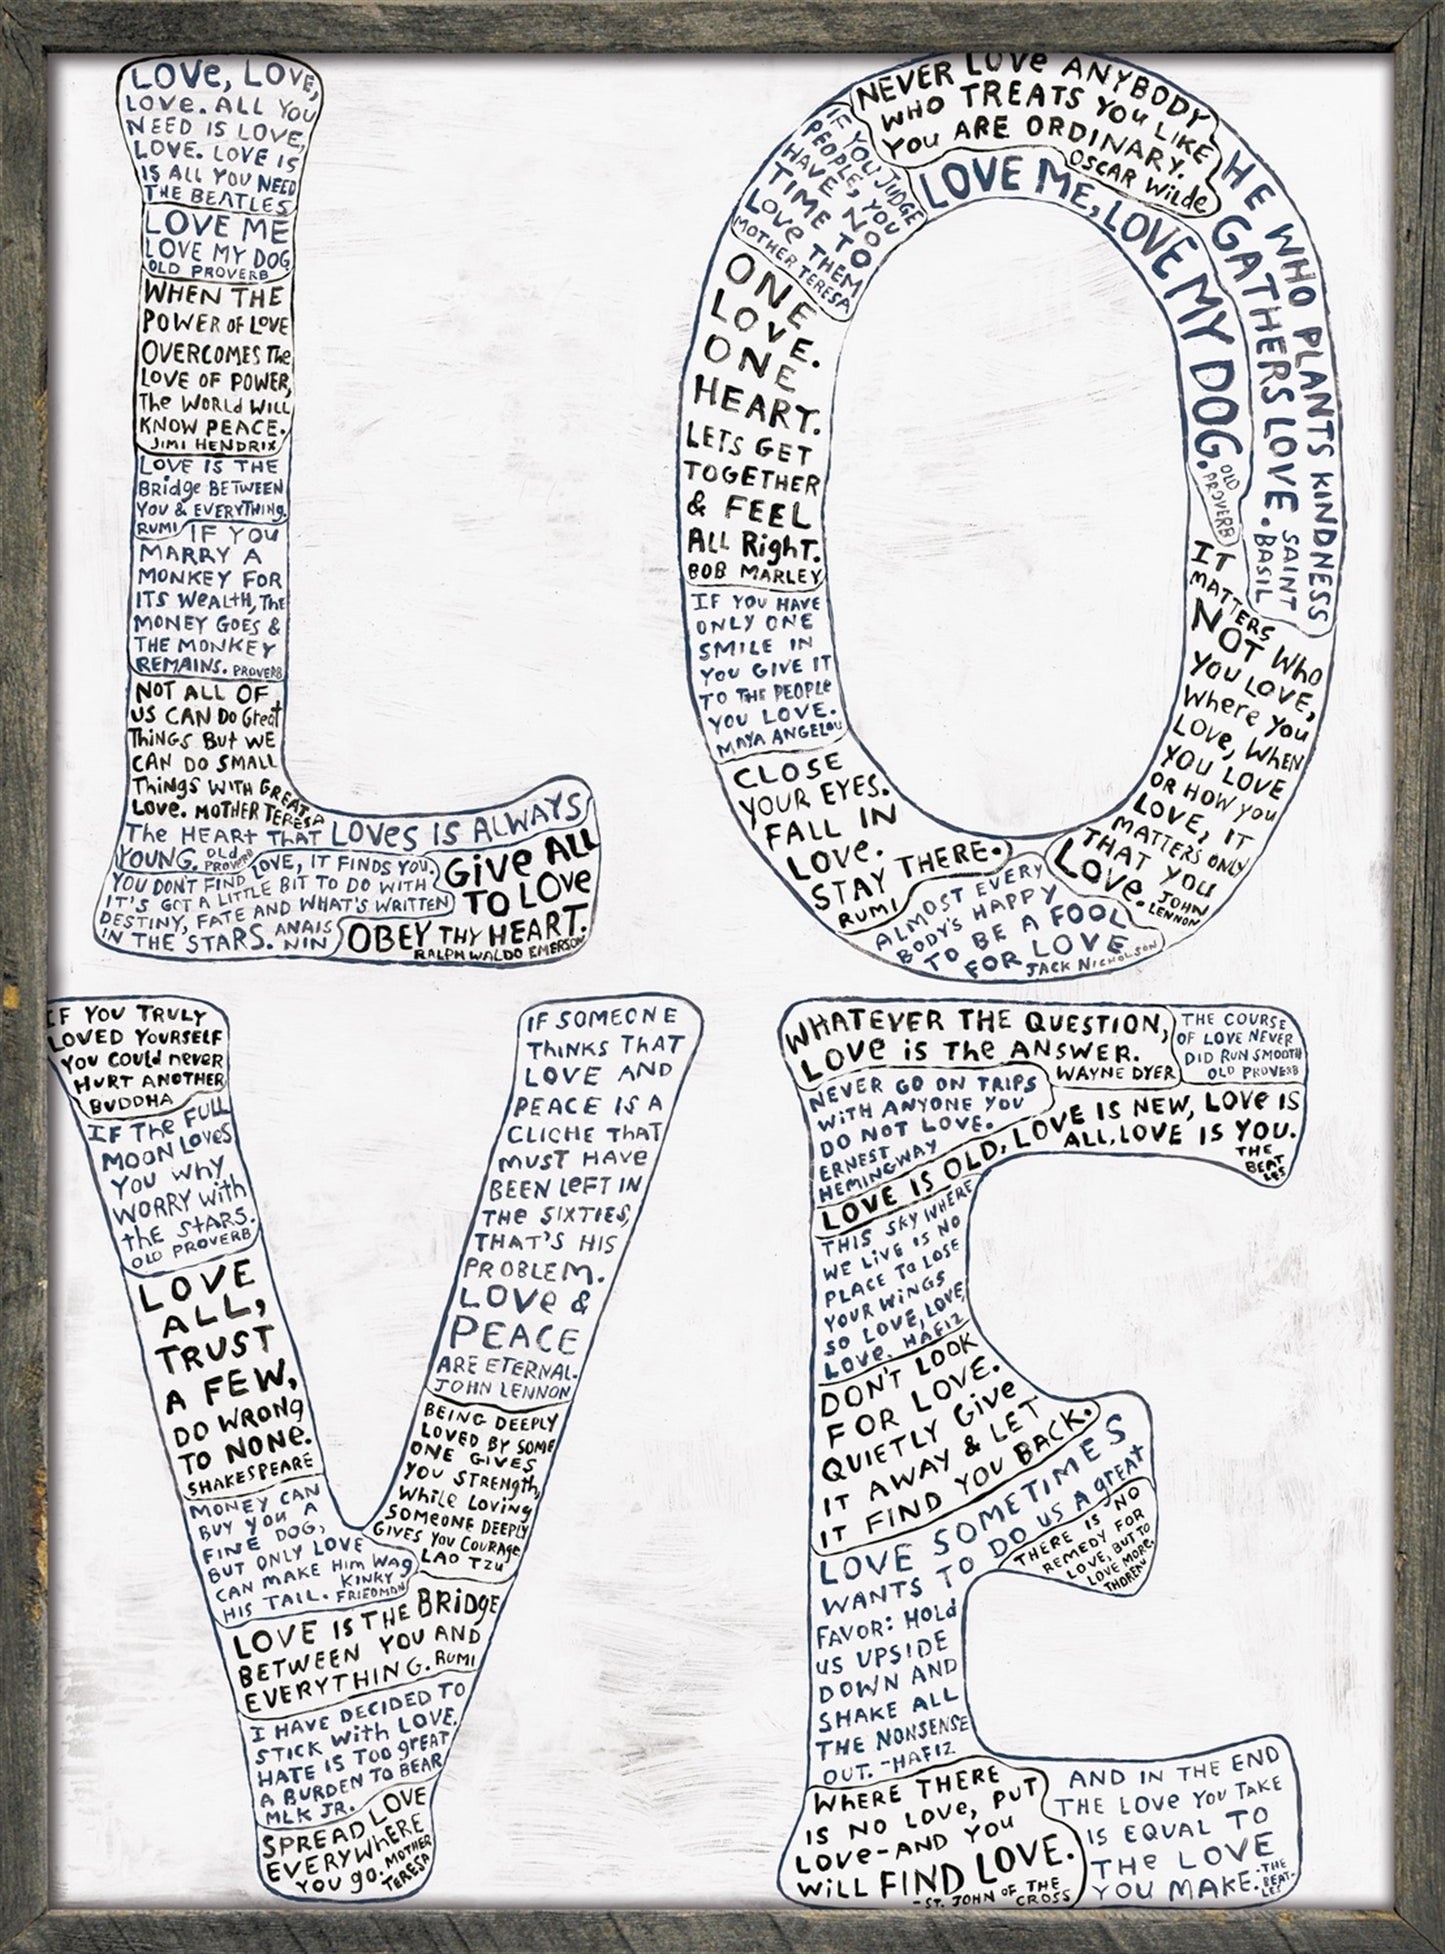 LOVe, LOVe,
LOVe. ALL YOU
NEED IS LOVE,
LOVE. LOVE IS
IS ALL YOU NEED
THE BEATLES
LOVE ME
LOVE MY DOG
OLD PROVERB
WHEN THE
POWER OF LOVE
OVERCOMES The
LOVE OF POWER,
The WORLD WILL
KNOW PEACE.
JIMI HENDRIX
LOVE IS THE
BRidge BETWEEN
YOU & EVERYTHING.
RUMI
IF YOU
MARRY A
MONKEY FOR
ITS WeALtH, The
MONEY GOES &
THE MONKEY
REMAINS. PROVERB
NOT ALL OF
US CAN DO Great
ThiNGS BUt WE
CAN DO SMALL
Things WITH GREAT
LOVe. MOTHER TERESA
The HEARt THAT LOVes IS ALWAYS
YOUNG. OLD PROVERB
YOU DON'T FIND LOVE, IT FINDS YOU.
IT'S GOT A LITTLE BIT TO DO WITH
DESTINY, FATE AND WHAT'S WRITTEN
IN THE STARS. ANAIS NIN
GIVe ALL
TO LOVe
OBEY THY HEART.
RALPH WALDO EMERSON
NEVER LOVe ANYBODY
WHO TREATS YOU LIKE
YOU ARE ORDINARY.
OSCAR WILDe
IF YOU JUDGE
PEOPLE, YOU
HAVE NO
TIME TO
LOVe THEM
MOTHER TERESA
LOVE ME, LOVE MY DOG.
OLD PROVERB
HE WHO PLANTS KINDNESS
GATHERS LOVE. SAINT
BASIL
ONE
LOVE.
ONE
HEART.
LETS GET
TOGETHER
& FEEL
ALL RighT.
BOB MARLEY
IF YOU HAVE
ONLY ONE
SMILE IN
YOU GIVE IT
TO THE PEOPLe
YOU LOVE.
MAYA ANGELOU
CLOSE
YOUR EYES.
FALL IN
LOVe.
STAY THERE.
RUMI
ALMOST EVERY
BODY'S HAPPY
TO BE A FOOL
FOR LOVE
JACK NICHOLSON
IT
MATTERS
NOT WHO
YOU LOVE,
Where YOU
LOVe, WHEN
YOU LOVE
OR HOW YOU
LOVE, IT
MATTERS ONLY
THAT YOU
LOVe. JOHN
LENNON
IF YOU TRULY
LOVED YOURSELF
YOU COULd neVer
HURT ANOTHER
BUDDHA
IF THe FULL
MOON LOVeS
YOU WhY
WORRY With
the STARS.
OLD PROVERB
LOVE
ALL,
TRUST
A FEW,
DO WRONG
TO NONe.
SHAKESPEARE
MONEY CAN
BUY YOU A
FINE DOG,
BUT ONLY LOVE
CAN MAKE Him WAg
HIS TAIL. KINKY
FRIEDMAN
LOVE IS THE BRidge
BETWEEN YOU AND
EVERYTHING. RUMI
I HAVE DECIDED TO
STICK With LOVE.
HATE IS TOO gREAT
A BURDEN TO BEAR
MLK JR.
SPREAD LOVE
EVERYWHERE
YOU gO. MOTHER
TERESA
IF SOMEONE
THINKS THAT
LOVE AND
PEACE IS A
CLICHE THAT
MUST HAVe
BEEN LEFT IN
THe SIXTIES,
THAT'S HIS
PROBLEM.
LOVe &
PEACE
ARE ETERNAL.
JOHN LENNON
BEING DEEPLY
LOVED BY SOME
ONE GIVES
YOU STRENgth,
WHiLe LOVing
SOMeONE DEEPLY
GIVES YOU COURAge
LAO TZU
WHATEVER THE QUESTION,
LOVe IS THe ANSWER.
WAYNE DYER
THE COURSE
OF LOVE NEVER
DID RUN SMOOTH
OLD PROVERB
NEVER GO ON TRIPS
WITH ANYONE YOU
DO NOT LOVE.
ERNEST
HEMINGWAY
LOVE IS OLD, LOVE IS NEW, LOVe IS
ALL, LOVE IS YOU.
THE
BEAT
LES
THIS SKY WHERE
WE LIVE IS NO
PLACE To LOSE
YOUR WINGS
SO LOVE, LOVE,
LOVE. HAFIZ
DON'T LOOK
FOR LOVE.
QUIETLY GIVe
IT AWAY & LET
IT FIND YOU BACK.
LOVE SOMETIMES
WANTS TO DO US A gREAT
FAVOR: HOLd
US UPSIDE
DOWN AND
SHAKE ALL
THE NONSENSE
OUT. -HAFIZ
THERE IS NO
REMEDY FOR
LOVE, BUT TO
LOVE MORE.
THOREAU
WHERE THERE
IS NO LOVe, PUT
LOVe-AND YOU
WILL FIND LOVE.
-ST. JOHN OF THE
CROSS
AND IN THE END
THE LOVe YOU TAKE
IS EQUAL TO
THe LOVE
YOU MAKE. -THE
BEAT-
LES